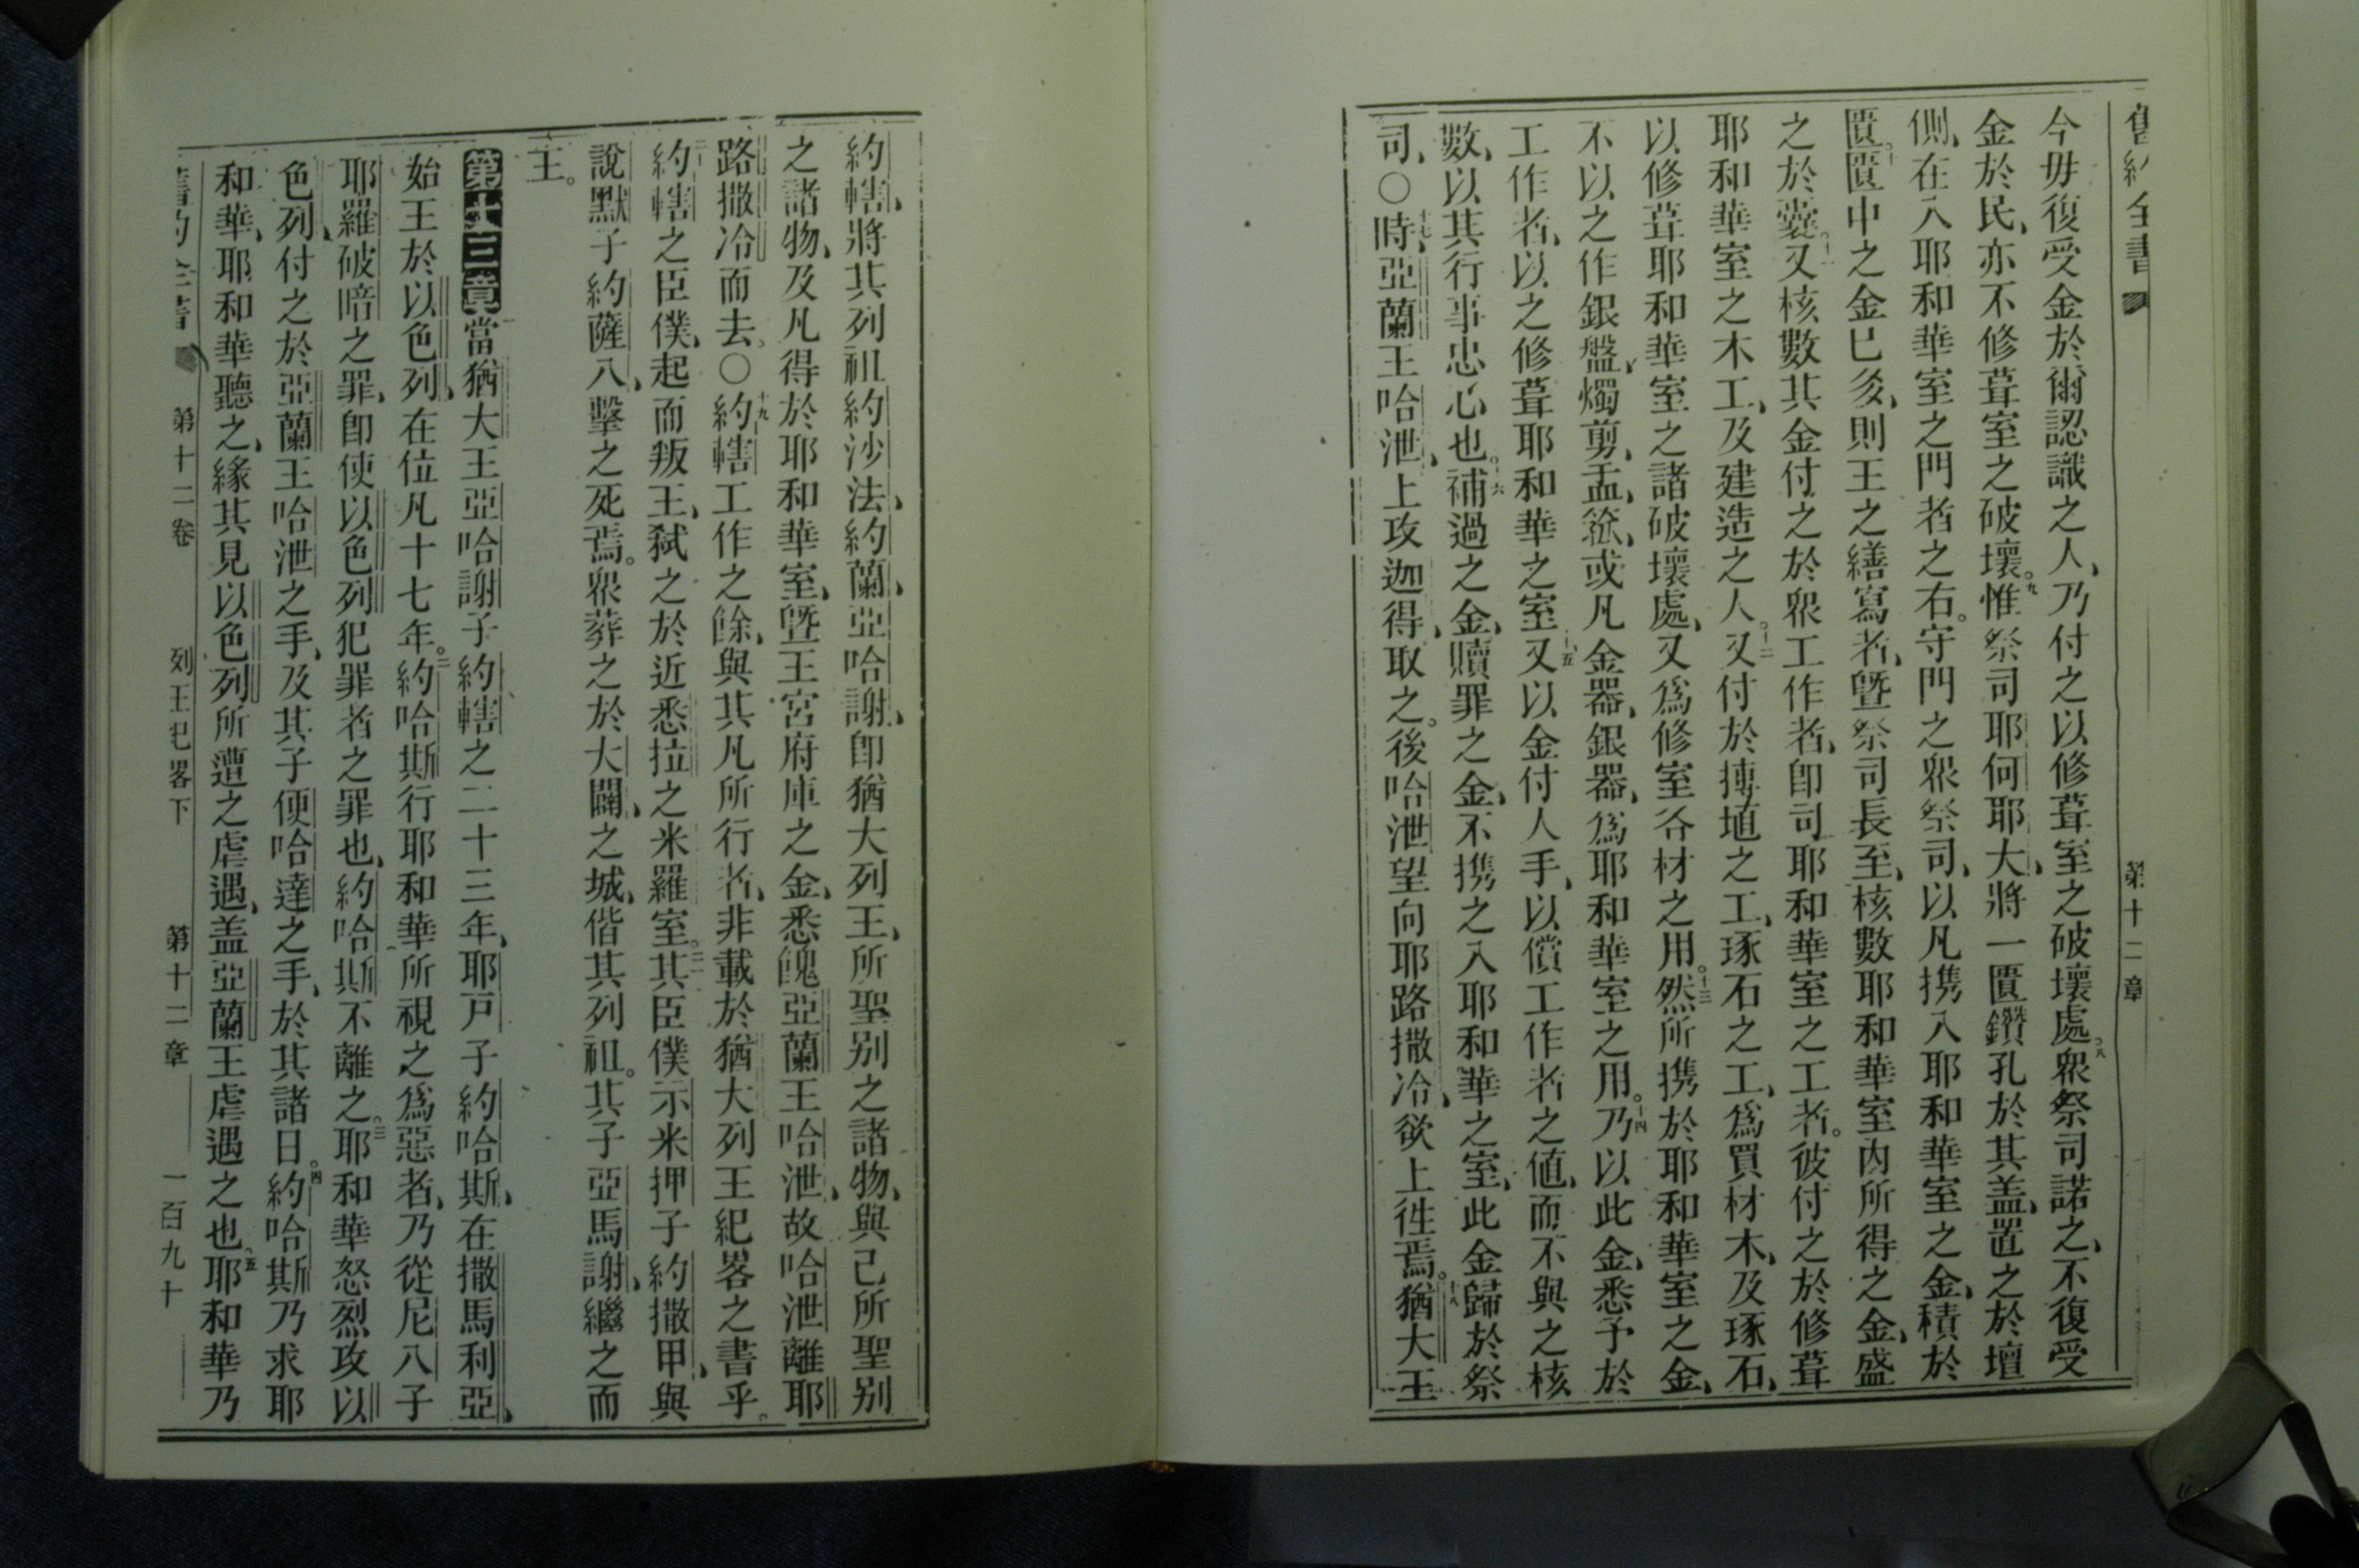 舊約全書 第十二章
今毋復受金於爾認識之人、乃付之以修葺室之破壞處。八衆祭司諾之、不復受
金於民、亦不修葺室之破壞。九惟祭司耶何耶大、將一匱鑽孔於其盖、置之於壇
側、在入耶和華室之門者之右。守門之衆祭司、以凡携入耶和華室之金、積於
匱。十匱中之金已多、則王之繕寫者、曁祭司長至、核數耶和華室內所得之金、盛
之於囊。十一又核數其金付之於衆工作者、卽司耶和華室之工者。彼付之於修葺
耶和華室之木工、及建造之人。十二又付於摶埴之工、琢石之工、爲買材木、及琢石、
以修葺耶和華室之諸破壞處、又爲修室各材之用。十三然所携於耶和華室之金、
不以之作銀盤、燭剪、盂、箛、或凡金器、銀器、爲耶和華室之用。十四乃以此金、悉予於
工作者、以之修葺耶和華之室。十五又以金付人手、以償工作者之値、而不與之核
數、以其行事忠心也。十六補過之金、贖罪之金、不携之入耶和華之室、此金歸於祭
司、〇十七時、亞蘭王哈泄、上攻迦得、取之。後哈泄望向耶路撒冷、欲上徃焉。十八猶大王
約轄、將其列祖約沙法、約蘭、亞哈謝、卽猶大列王、所聖别之諸物、與己所聖别
之諸物、及凡得於耶和華室、曁王宮府庫之金、悉餽亞蘭王哈泄、故哈泄離耶
路撒冷而去。〇十九約轄工作之餘、與其凡所行者、非載於猶大列王紀畧之書乎。
二十約轄之臣僕、起而叛王、弒之於近悉拉之米羅室。二一其臣僕示米押子約撒甲、與
說默子約薩八、擊之死焉。衆葬之於大闢、之城、偕其列祖。其子亞馬謝、繼之而
王。
第十三章 當猶大王亞哈謝子約轄之二十三年、耶戸子約哈斯、在撒馬利亞、
始王於以色列、在位凡十七年。二約哈斯行耶和華所視之爲惡者、乃從尼八子
耶羅破暗之罪、卽使以色列犯罪者之罪也、約哈斯不離之。三耶和華怒烈攻以
色列、付之於亞蘭王哈泄之手、及其子便哈達之手、於其諸日。四約哈斯乃求耶
和華、耶和華聽之、緣其見以色列所遭之虐遇、盖亞蘭王虐遇之也、五耶和華乃
舊約全書 第十二卷 列王紀畧下 第十二章 一百九十